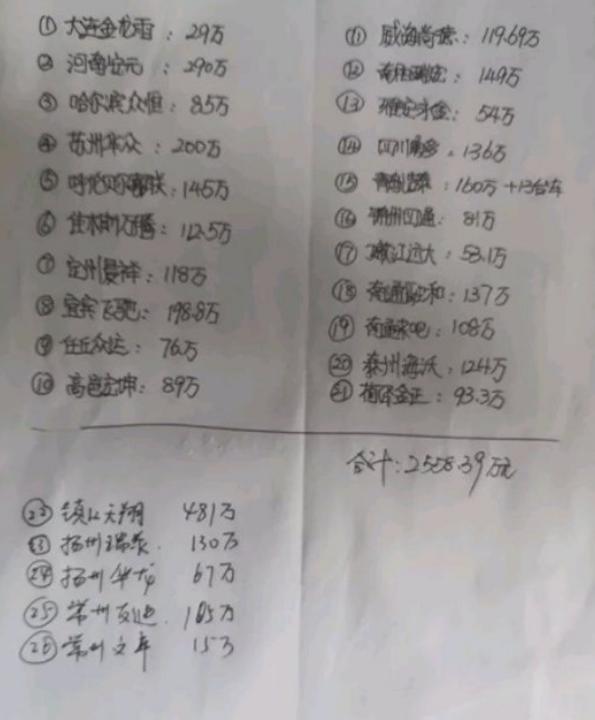 ① 大连金龙雷：29万
② 河南安元：290万
③ 哈尔滨众恒：85万
④ 苏州华众：200万
⑤ 呼伦贝尔蒙联：145万
⑥ 佳木斯万腾：112.5万
⑦ 定州曼祥：118万
⑧ 宜宾飞驰：198.8万
⑨ 任丘众运：76万
⑩ 高邑宏坤：89万
⑪ 威海尚德：119.69万
⑫ 149万
⑬ 雅安永金：54万
⑭ 四川：136万
⑮ 160万+13台车
⑯ 锦州四通：81万
⑰ 嫩江远大：53.1万
⑱ 南通融和：137万
⑲ 南通来吧：108万
⑳ 泰州海沃：124万
㉑ 菏泽金正：93.3万
合计：2558.39万元
㉒ 镇江天翔 481万
㉓ 扬州瑞泰 130万
㉔ 扬州华龙 67万
㉕ 常州友迪 185万
㉖ 常州文年 15万